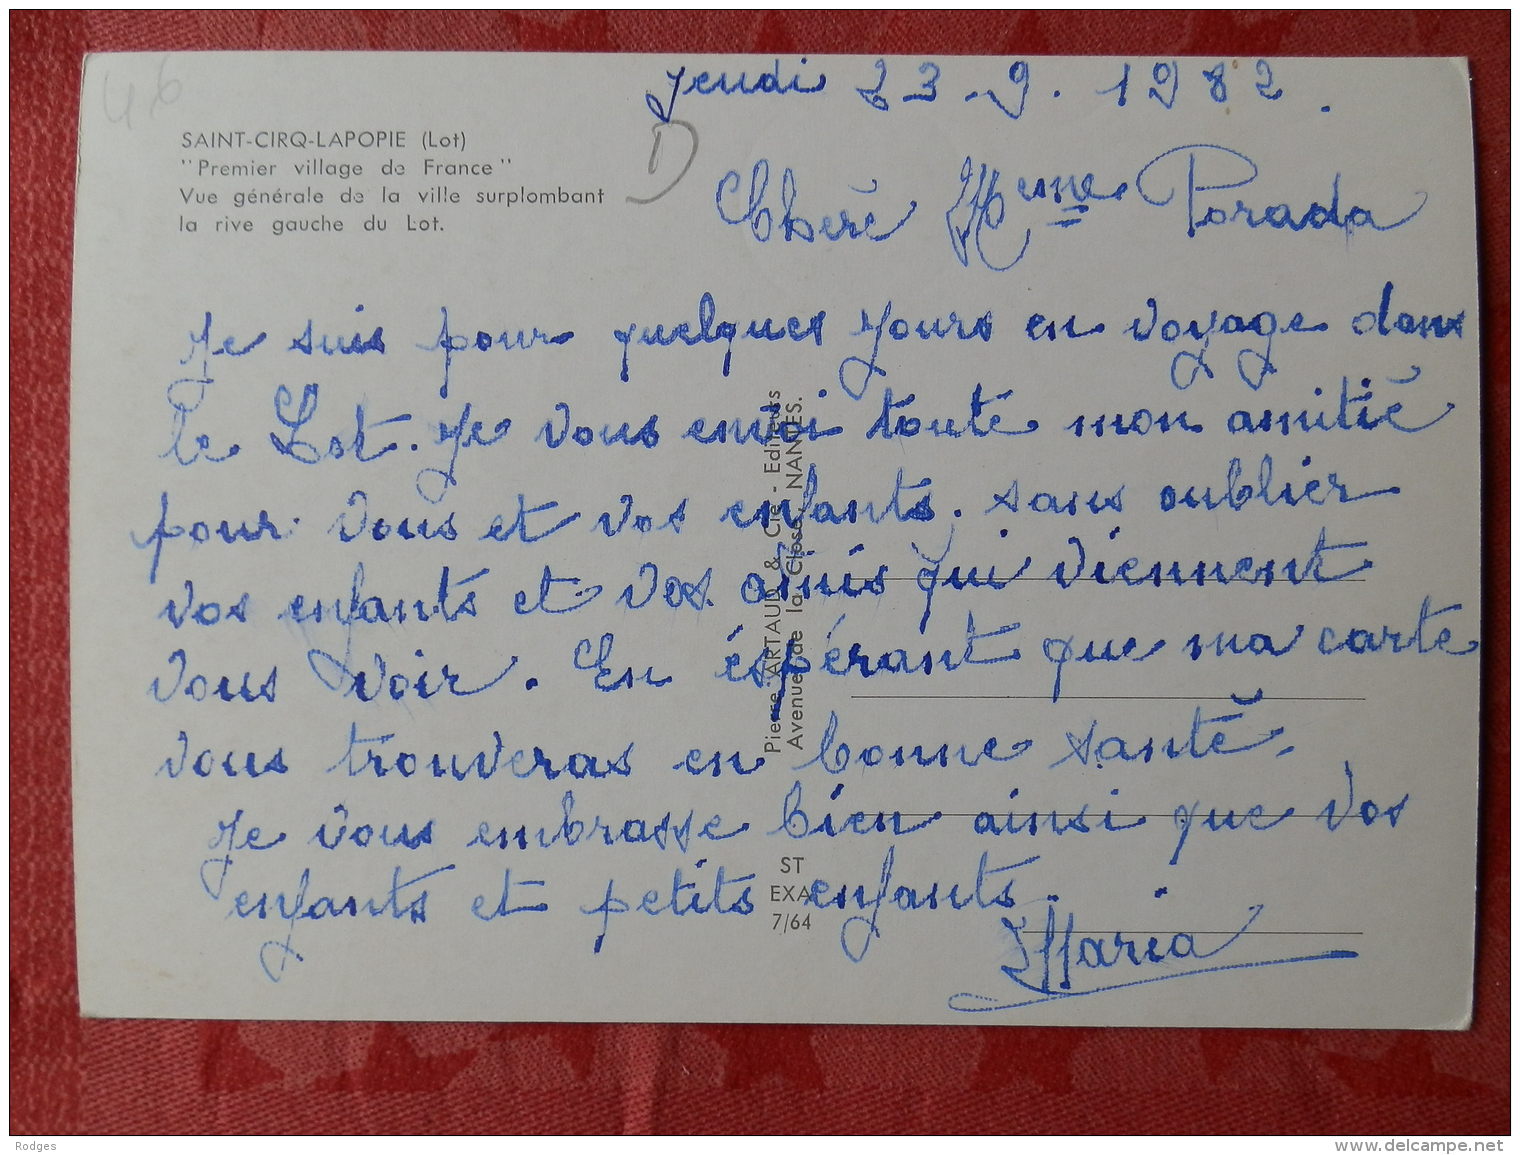 46
Jeudi 23.9.1982.
SAINT-CIRQ-LAPOPIE (Lot)
"Premier village de France"
Vue générale de la ville surplombant
la rive gauche du Lot.
D
Cheré Mme Porada
Je suis pour quelques jours en voyage dans
le Lot. Je vous envoi touté mon amitié
pour vous et vos enfants. sans oublier
vos enfants et vos amis qui viennent
vous voir. En éspérant que ma carte
vous trouveras en bonne santé.
Je vous embrasse bien ainsi que vos
enfants et petits enfants.
Maria
Pierre ARTAUD & Cie - Editeurs
Avenue de la Close, NANTES.
ST
EXA
7/64
Rodges
delcampe.net